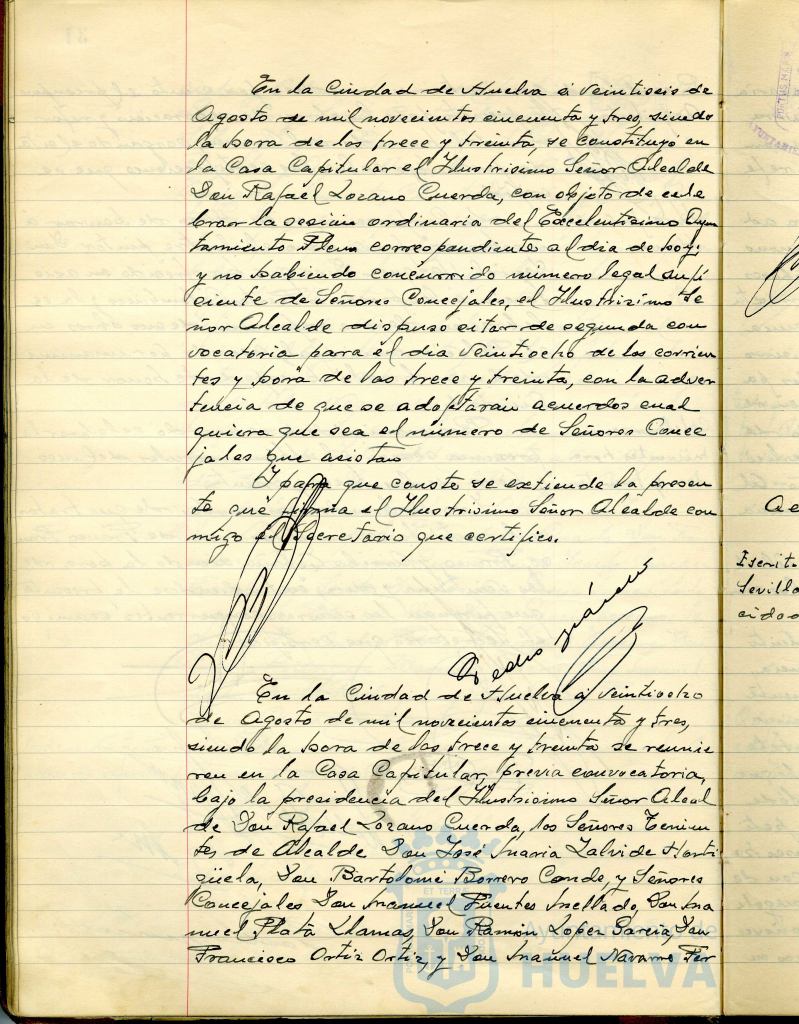 En la Ciudad de Huelva a veintiseis de
Agosto de mil novecientos cincuenta y tres, siendo
la hora de las trece y treinta, se constituyó en
la Casa Capitular el Ilustrisimo Señor Alcalde
Don Rafael Lozano Cuerda, con objeto de cele
brar la sesión ordinaria del Excelentisimo Ayun
tamiento Pleno correspondiente al dia de hoy;
y no habiendo concurrido número legal sufi
ciente de Señores Concejales, el Ilustrisimo Se
ñor Alcalde dispuso citar de segunda con
vocatoria para el dia veintiocho de los corrien
tes y hora de las trece y treinta, con la adver
tencia de que se adoptarán acuerdos cual
quiera que sea el número de Señores Conce
jales que asistan
Y para que conste se extiende la presen
te que firma el Ilustrisimo Señor Alcalde con
migo el Secretario que certifico.
Pedro
En la Ciudad de Huelva a veintiocho
de Agosto de mil novecientos cincuenta y tres,
siendo la hora de las trece y treinta se reunie
ron en la Casa Capitular, previa convocatoria,
bajo la presidencia del Ilustrisimo Señor Alcal
de Don Rafael Lozano Cuerda, los Señores Tenien
tes de Alcalde Don José Maria Zalvide Horti
güela, Don Bartolomé Borrero Conde, y Señores
Concejales Don Manuel Fuentes Mellado, Don Ma
nuel Plata Llamas, Don Ramón Lopez Garcia, Don
Francisco Ortiz Ortiz, y Don Manuel Navarro Fer
HUELVA
Escrit.
Sevilla
cidas